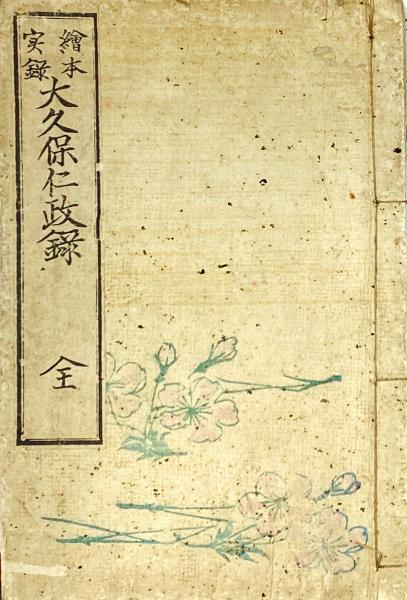 繪本
実録
大久保仁政録
全